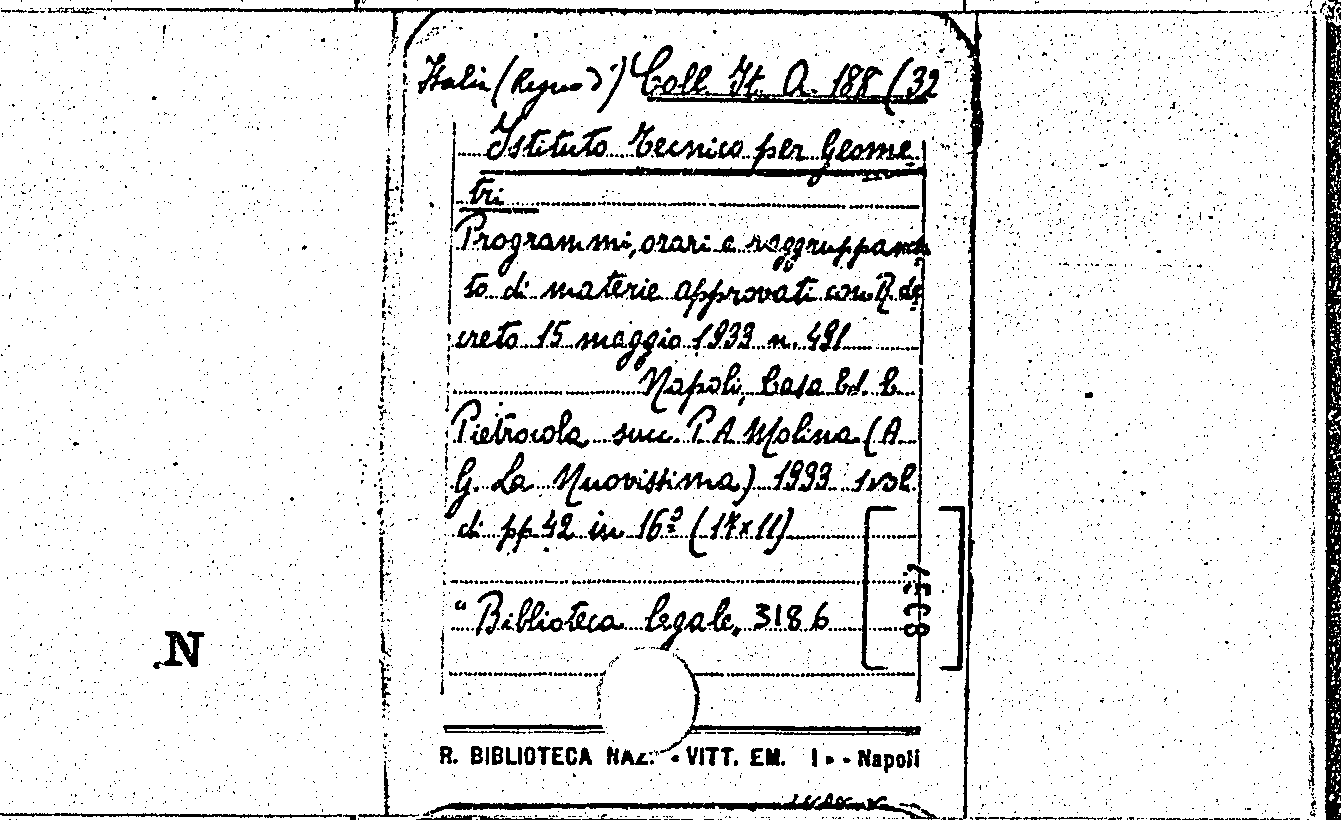 Italia (Regno d') Coll. It. A. 188 (32
Istituto Tecnico per Geome
tri
Programmi, orari e raggruppamen
to di materie approvati con R. de
creto 15 maggio 1933 n. 491
Napoli, Casa Ed. E.
Pietrocola succ. P. A. Molina (A.
G. La Nuovissima) 1933 1 vol.
di pp. 42 in 16º (17x11)
"Biblioteca legale, 3186
N
R. BIBLIOTECA NAZ. · VITT. EM. I» - Napoli